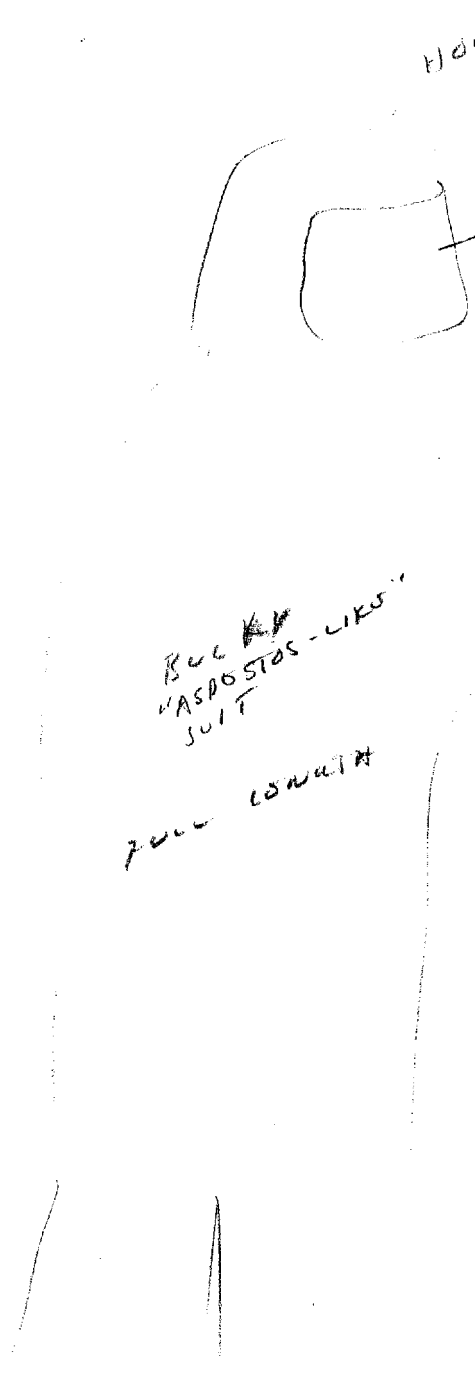 BULKY
"ASPOSTOS-LIKE"
SUIT
FULL LENGTH